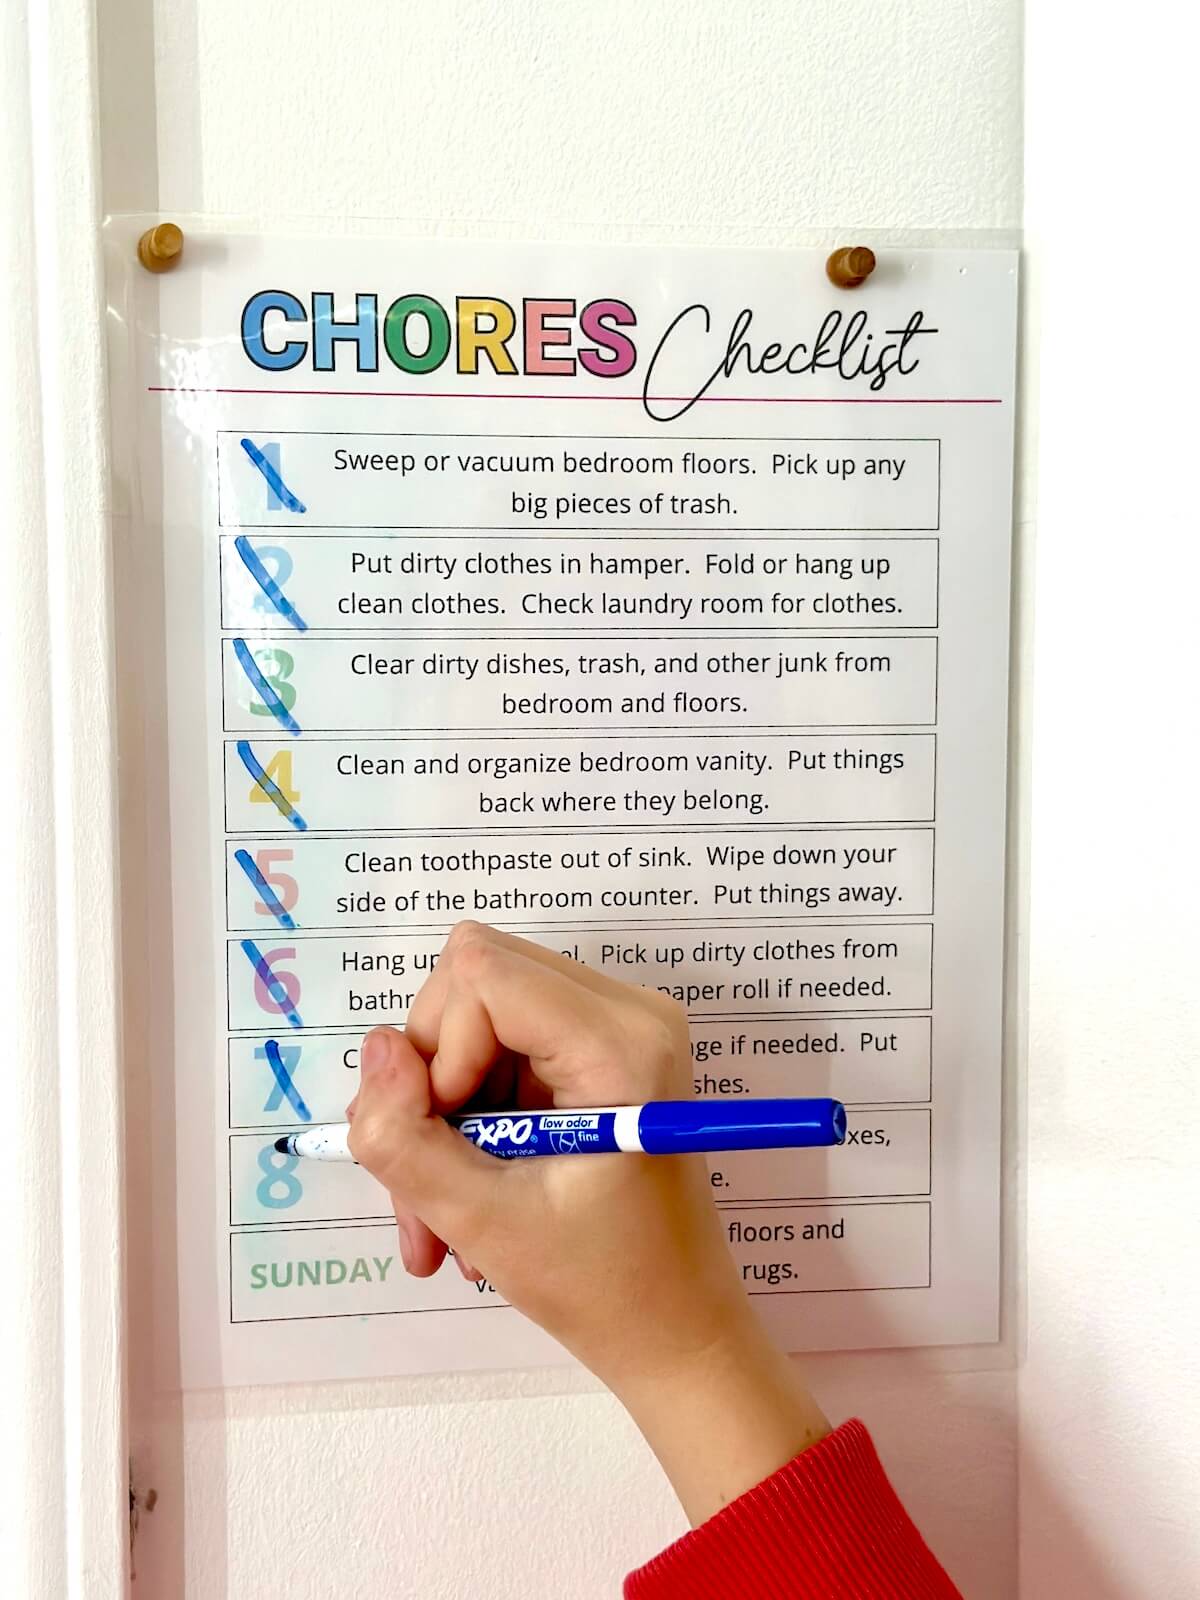 CHORES Checklist
1 Sweep or vacuum bedroom floors. Pick up any
big pieces of trash.
2 Put dirty clothes in hamper. Fold or hang up
clean clothes. Check laundry room for clothes.
3 Clear dirty dishes, trash, and other junk from
bedroom and floors.
4 Clean and organize bedroom vanity. Put things
back where they belong.
5 Clean toothpaste out of sink. Wipe down your
side of the bathroom counter. Put things away.
6 Hang up Pick up dirty clothes from
paper roll if needed.
7 if needed. Put
8
SUNDAY floors and
rugs.
EXPO low odor
fine